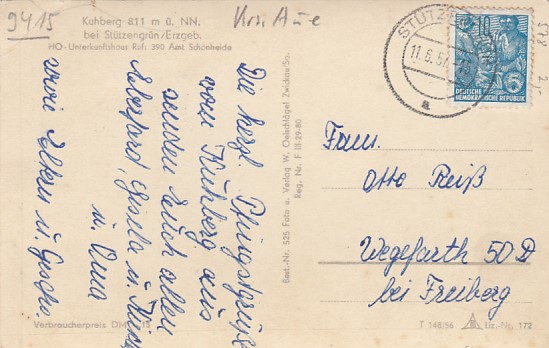 9415
Krs. Aue
Kuhberg 811 m ü. NN.
bei Stützengrün/Erzgeb.
HO-Unterkunftshaus Ruf: 390 Amt Schönheide
Die herzl. Pfingstgrüße
vom Kuhberg aus
senden Euch allen
Eberhard, Gisela u.
sowie Eltern u. Geschw.
u. Oma
Verbraucherpreis DM
Best.-Nr. 525 Foto u. Verlag W. Oelschlägel Zwickau/Sa.
Reg. Nr. F III-29-80
STÜTZEN
11.6.57
DEUTSCHE
DEMOKRATISCHE REPUBLIK
6
Fam.
Otto Reiß
Wegefarth 50 D
bei Freiberg
T 148/56
Liz.-Nr. 172